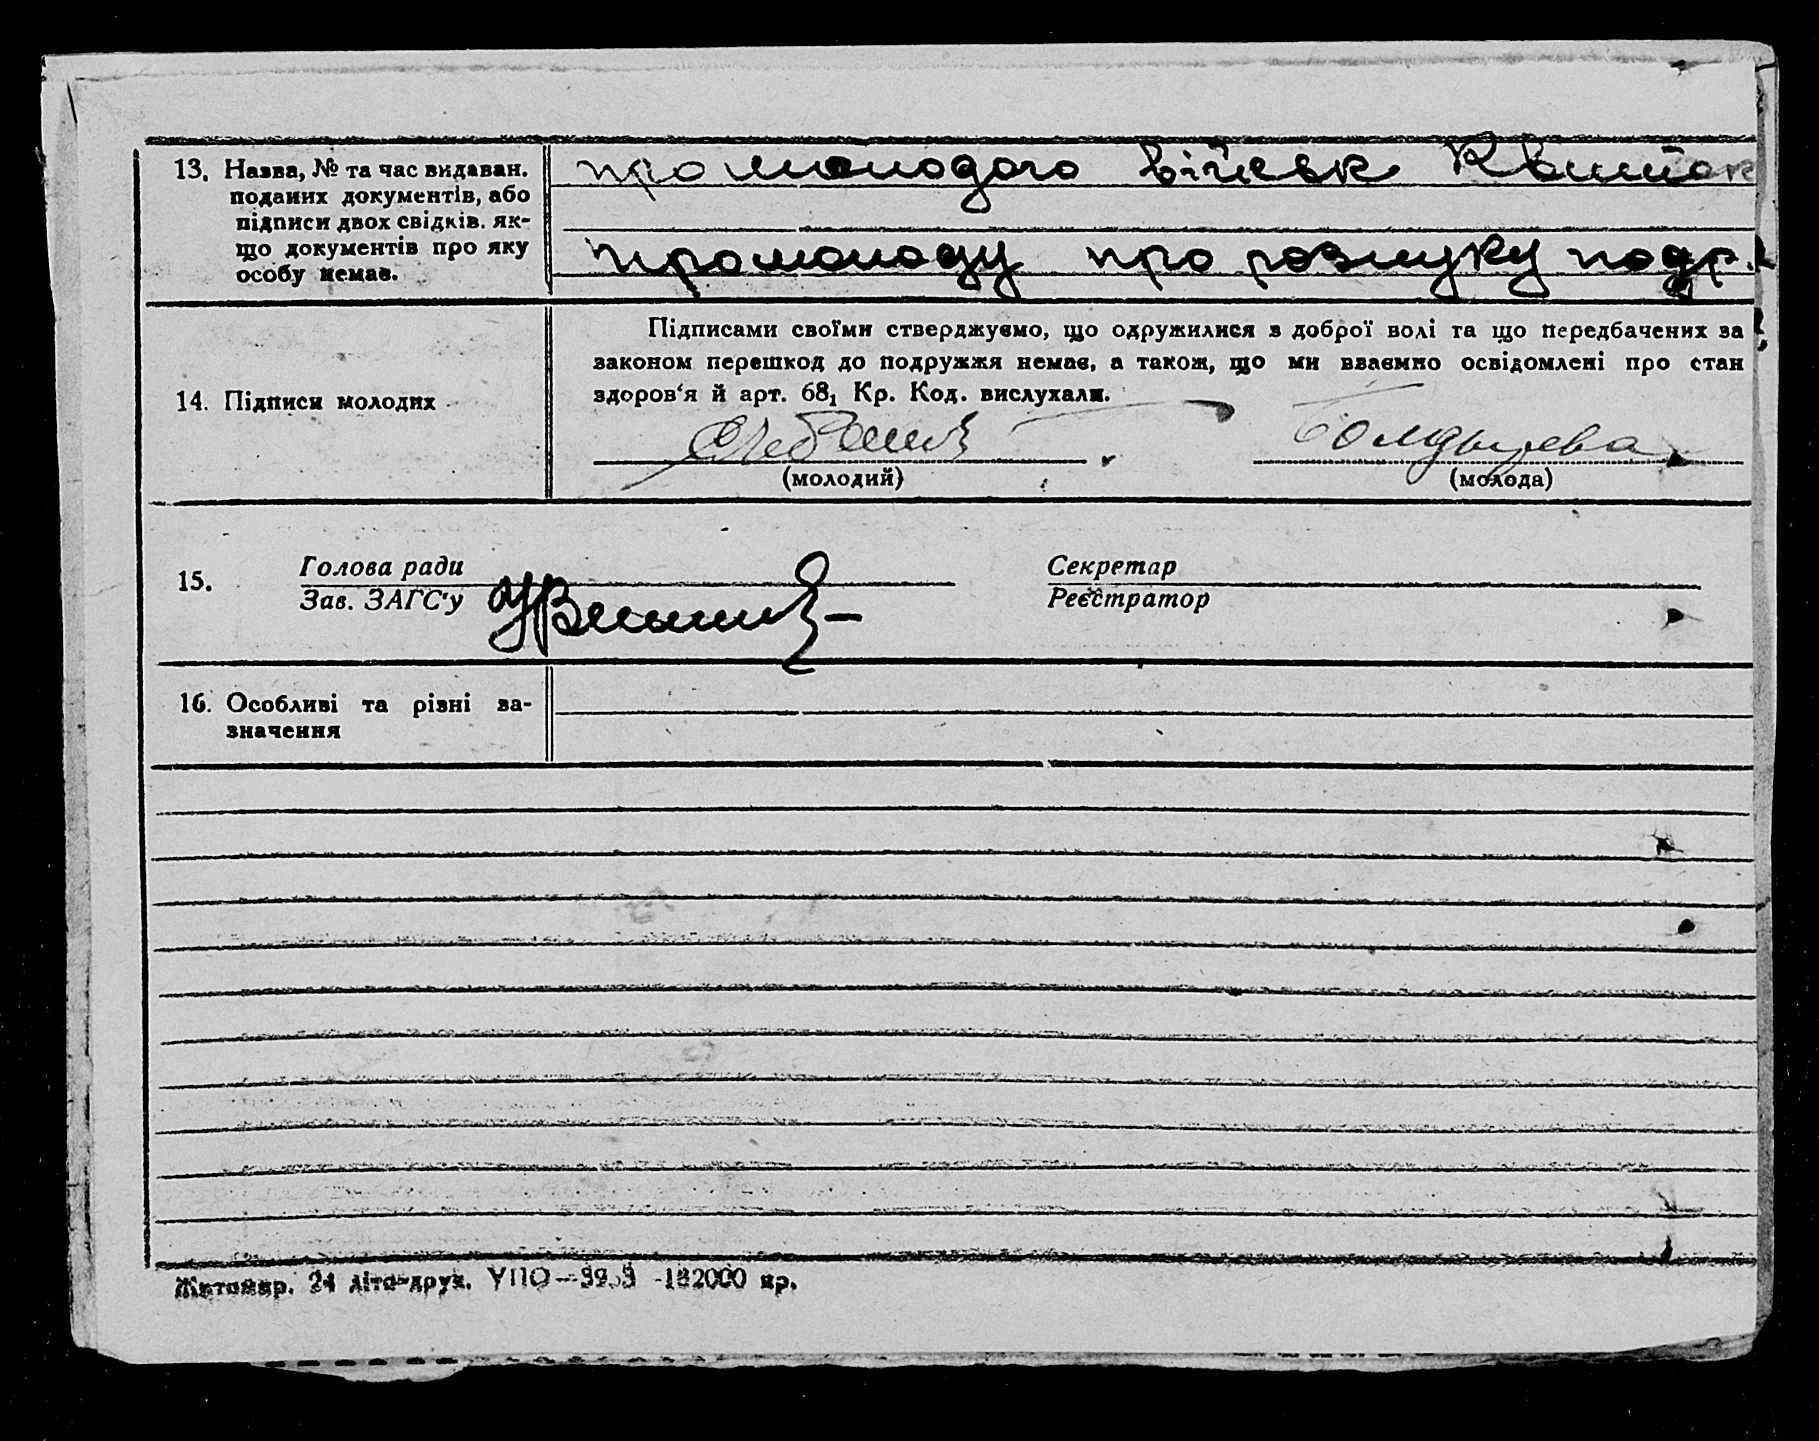 13. Назва, № та час видаван.
поданих документів, або
підписи двох свідків. як-
що документів про яку
особу немає.
про молодого військ квиток
про молоду про розшуку подр.
14. Підписи молодих
Підписами своїми стверджуємо, що одружилися з доброї волі та що передбачених за
законом перешкод до подружжя немає, а також, що ми взаємно освідомлені про стан
здоров'я й арт. 68₁ Кр. Код. вислухали.
Болдырева
(молодий) (молода)
15. Голова ради Секретар
Зав. ЗАГС'у Реєстратор
16. Особливі та різні за-
значення
Житомир. 24 літо-друк. УПО — 182000 пр.